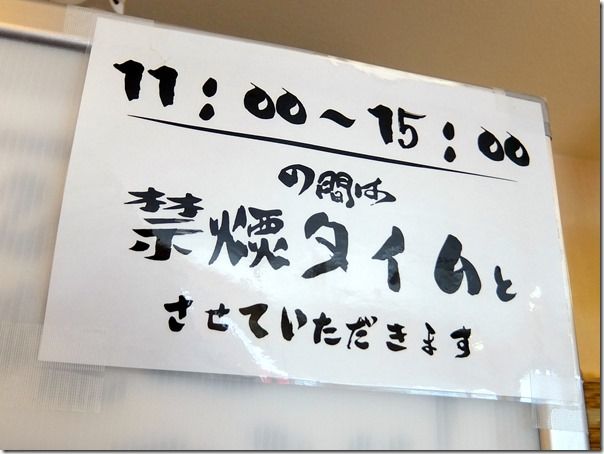 11:00～15:00
の間は
禁煙タイムと
させていただきます